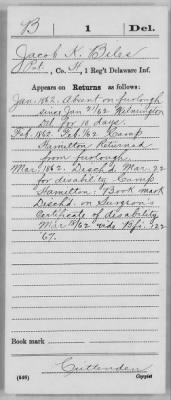 B | 1 | Del.
Jacob K. Biles
Pvt., Co. H, 1 Reg't Delaware Inf.
Appears on Returns as follows:
Jan. 1862. Absent on furlough
since Jan 27/62 Wilmington
Del. for 10 days.
Feb. 1862. Feb. /62 Camp
Hamilton Returned
from furlough.
Mar. 1862. Disch'd Mar. 22
for disability Camp
Hamilton: Book mark
Disch'd. on Surgeon's
Certificate of disability
Mar /62 vide 22
'67.
Book mark
(646) Crittenden
Copyist